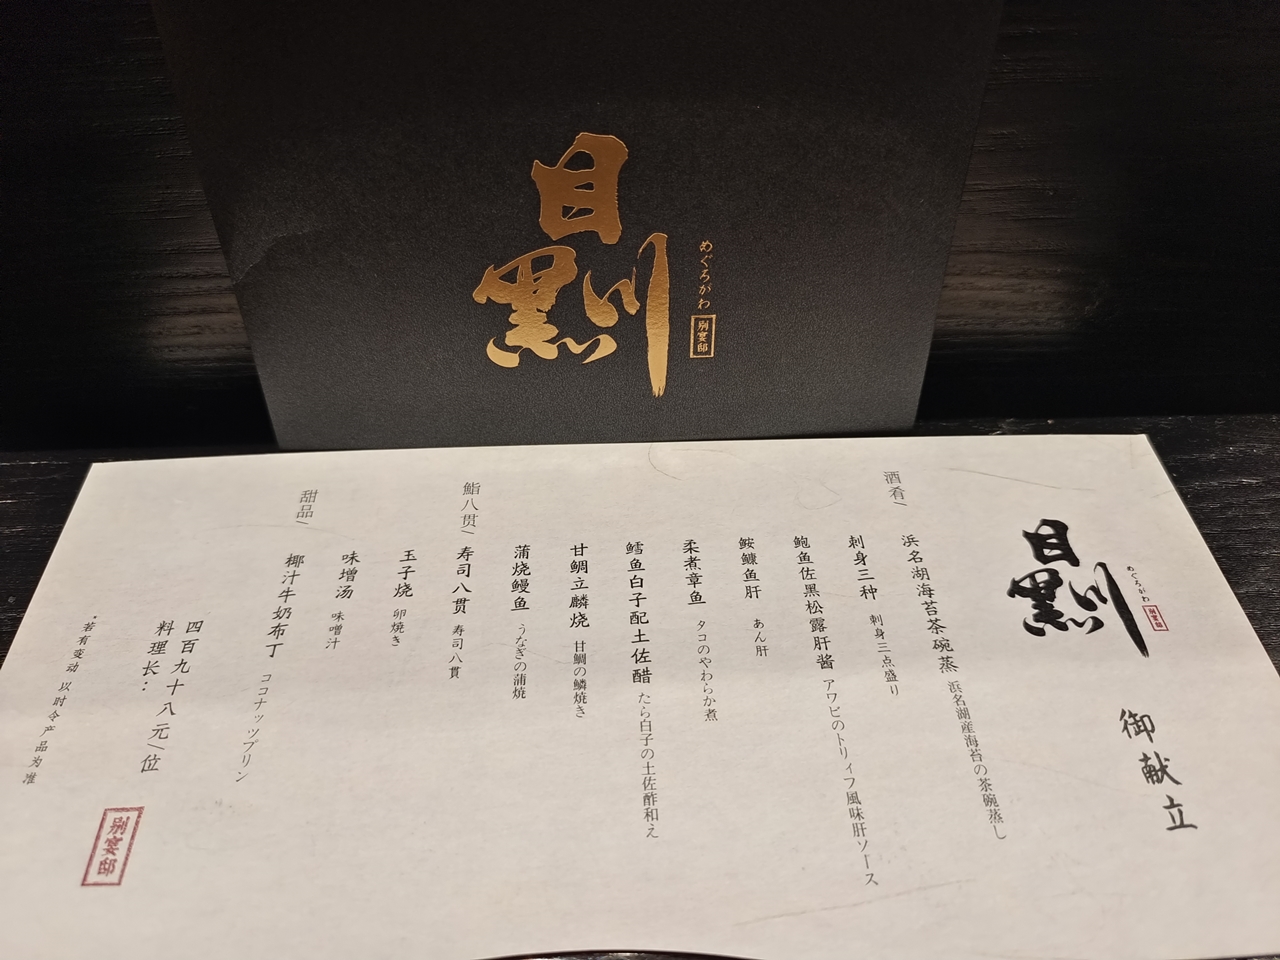 目黒川
めぐろがわ
別宴邸
目黒川
めぐろがわ
別宴邸
御献立
酒肴/
浜名湖海苔茶碗蒸 浜名湖産海苔の茶碗蒸し
刺身三种 刺身三点盛り
鲍鱼佐黑松露肝酱 アワビのトリィフ風味肝ソース
鮟鱇鱼肝 あん肝
柔煮章鱼 タコのやわらか煮
鳕鱼白子配土佐醋 たら白子の土佐酢和え
甘鲷立麟烧 甘鯛の鱗焼き
蒲烧鳗鱼 うなぎの蒲焼
鮨八贯/
寿司八贯 寿司八貫
玉子烧 卵焼き
味增汤 味噌汁
甜品/
椰汁牛奶布丁 ココナッツプリン
四百九十八元/位
料理长：
·若有变动 以时令产品为准
別宴邸